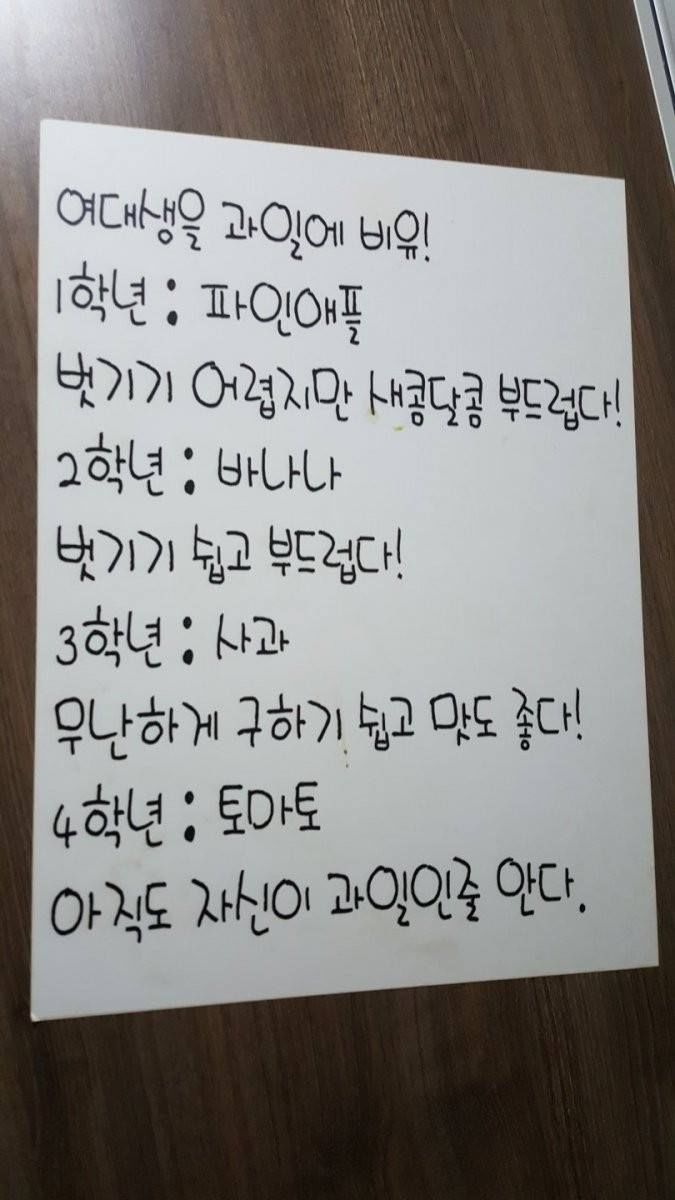 여대생을 과일에 비유!
1학년 : 파인애플
벗기기 어렵지만 새콤달콤 부드럽다!
2학년 : 바나나
벗기기 쉽고 부드럽다!
3학년 : 사과
무난하게 구하기 쉽고 맛도 좋다!
4학년 : 토마토
아직도 자신이 과일인줄 안다.